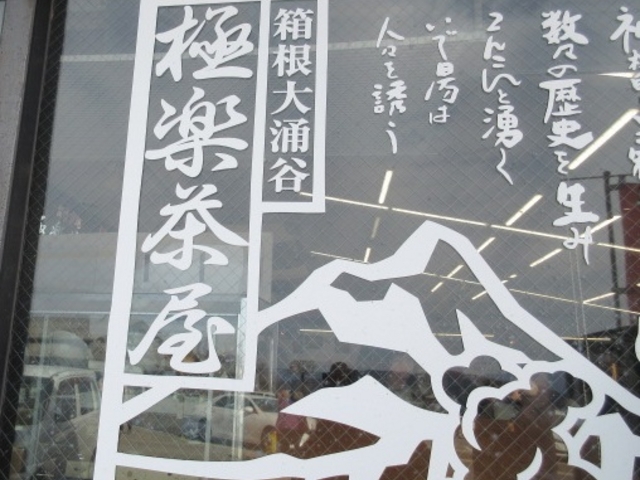 箱根大涌谷
極楽茶屋
数々の歴史を生み
こんこんと湧く
いで湯は
人々を誘う